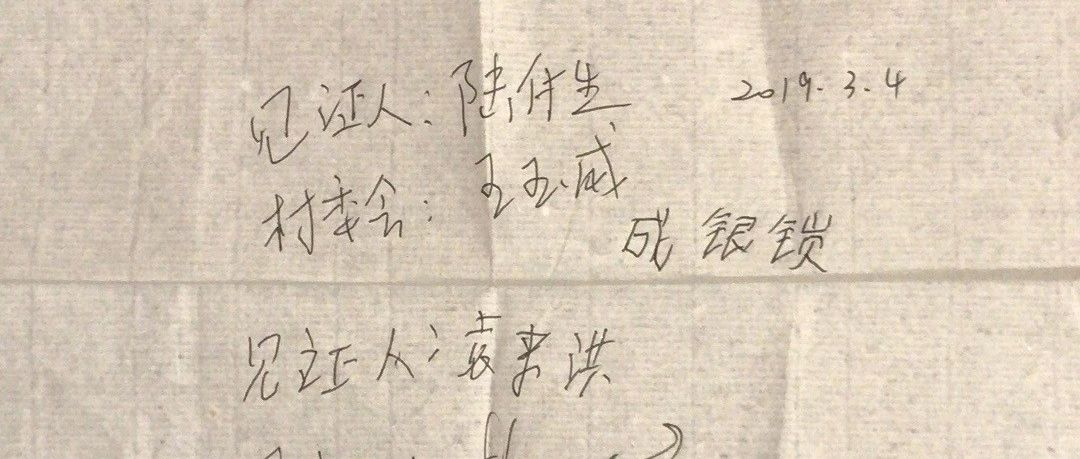 见证人：陆付生 2019.3.4
村委会：王玉成
成银锁
见证人：袁来洪